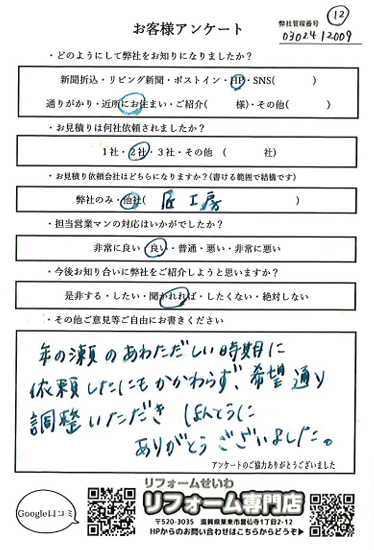 ⑫
お客様アンケート
弊社管理番号
0302412009
・どのようにして弊社をお知りになりましたか？
新聞折込・リビング新聞・ポストイン・HP・SNS( )
通りがかり・近所にお住まい・ご紹介( 様)・その他( )
・お見積りは何社依頼されましたか？
1社・2社・3社・その他 ( 社)
・お見積り依頼会社はどちらになりますか？(書ける範囲で結構です)
弊社のみ・他社( 匠工房 )
・担当営業マンの対応はいかがでしたか？
非常に良い・良い・普通・悪い・非常に悪い
・今後お知り合いに弊社をご紹介しようと思いますか？
是非する・したい・聞かれれば・したくない・絶対しない
・その他ご意見等ご自由にお書きください
年の瀬のあわただしい時期に
依頼したにもかかわらず、希望通り
調整いただき ほんとうに
ありがとうございました。
アンケートのご協力ありがとうございました
Google口コミ
リフォームせいわ
リフォーム専門店
〒520-3035 滋賀県栗東市霊仙寺1丁目2-12
HPからのお問い合わせはこちらからどうぞ▶